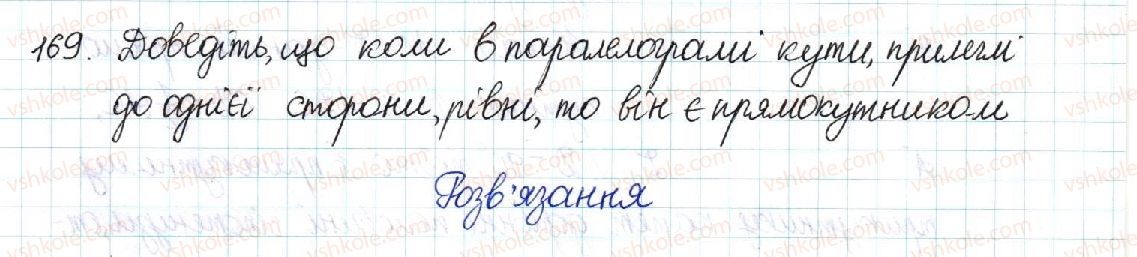 169. Доведіть, що коли в паралелограмі кути, прилеглі
до однієї сторони, рівні, то він є прямокутником
Розв'язання